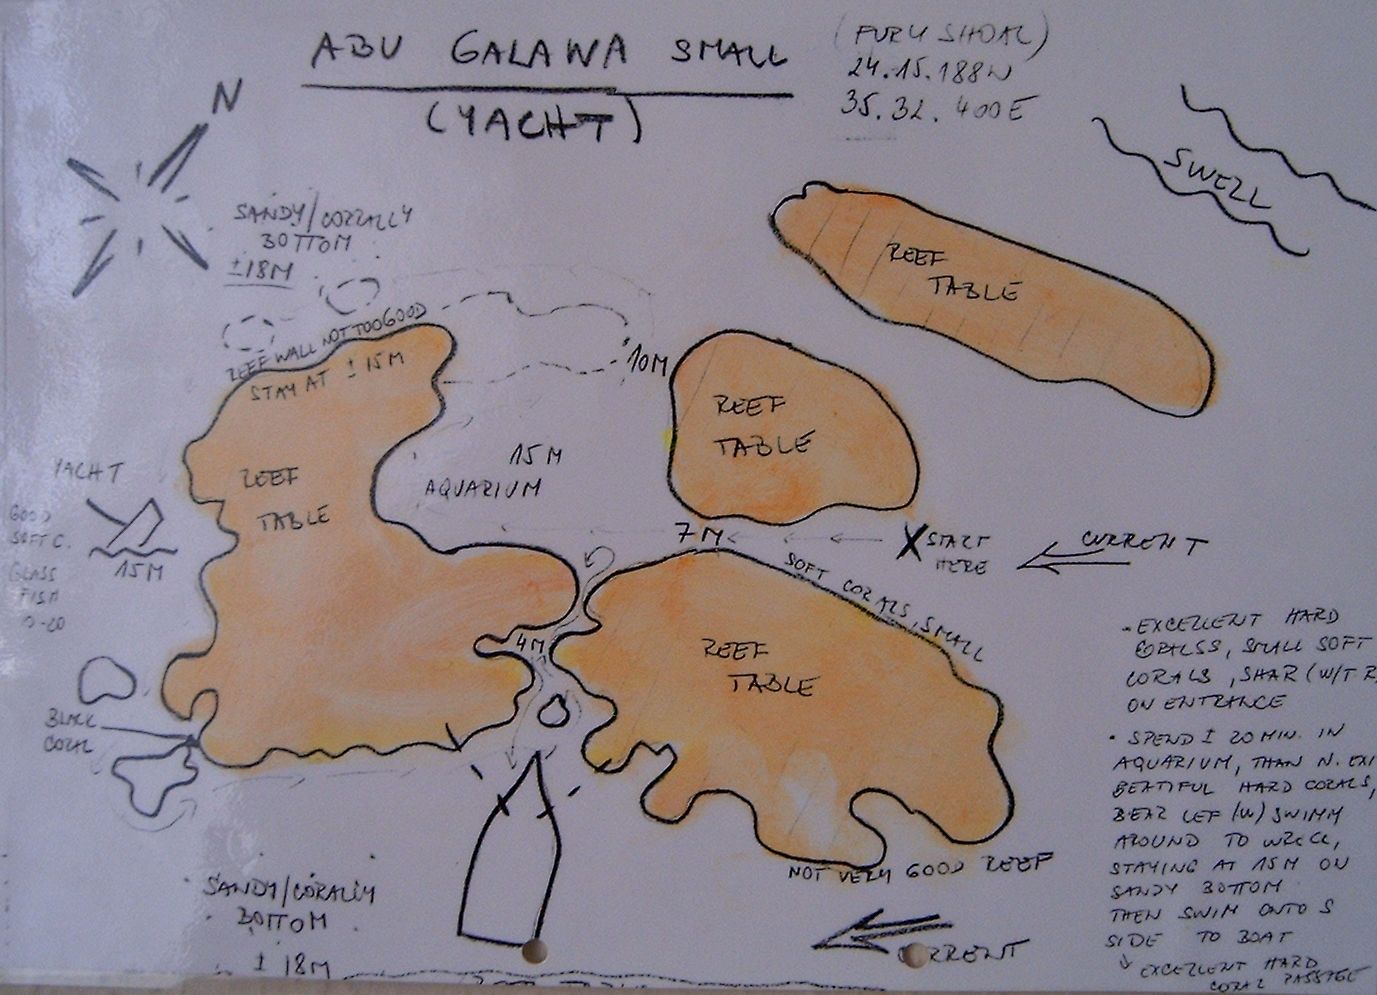 ABU GALAWA SMALL
(YACHT)
(FURY SHOAL)
24.15.188N
35.32.400E
N
SWELL
SANDY/CORRALLY
BOTTOM
±18M
REEF WALL NOT TOO GOOD
STAY AT ± 15M
10M
REEF
TABLE
REEF
TABLE
REEF
TABLE
15M
AQUARIUM
YACHT
GOOD
SOFT C.
15M
GLASS
FISH
7M
X START
HERE
CURRENT
SOFT CORALS, SMALL
4M
REEF
TABLE
BLACK
CORAL
- EXCELLENT HARD
CORALSS, SMALL SOFT
CORALS, SHAR (W/T R
ON ENTRANCE
• SPEND ± 20 MIN. IN
AQUARIUM, THAN N. EXI
BEATIFUL HARD CORALS,
BEAR LEF (W) SWIMM
AROUND TO WRECK,
STAYING AT 15M ON
SANDY BOTTOM
THEN SWIM ONTO S
SIDE TO BOAT
EXCELLENT HARD
CORAL PASSAGE
NOT VERY GOOD REEF
SANDY/CORALLY
BOTTOM
± 18M
CURRENT